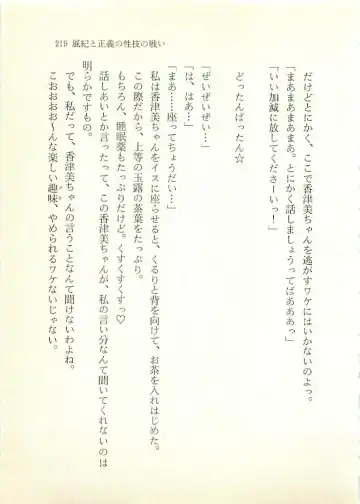 219 風紀と正義の性技の戦い
だけどとにかく、ここで香津美ちゃんを逃がすワケにはいかないのよっ。
「まあまあまあまあ。とにかく話しましょうってばあああっ」
「いい加減に放してくださーいっ！」
どったんばったん☆
「ぜいぜいぜい…」
「は、はあ…」
「まあ……座ってちょうだい…」
私は香津美ちゃんをイスに座らせると、くるりと背を向けて、お茶を入れはじめた。
この際だから、上等の玉露の茶葉をたっぷり。
もちろん、睡眠薬もたっぷりだけど。くすくすくすっ♡
話しあいとか言ったって、この香津美ちゃんが、私の言い分なんて聞いてくれないのは
明らかですもの。
でも、私だって、香津美ちゃんの言うことなんて聞けないわよね。
こおおおお～んな楽しい趣味、やめられるワケないじゃない。